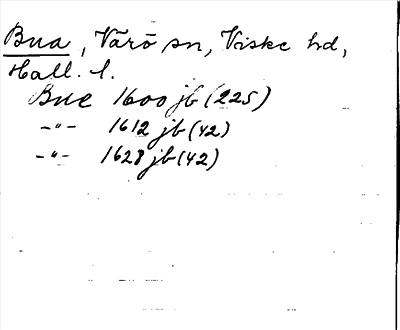 Bua, Värö sn, Viske hd,
Hall. l.
Bue 1600 jb (225)
-"- 1612 jb (42)
-"- 1628 jb (42)